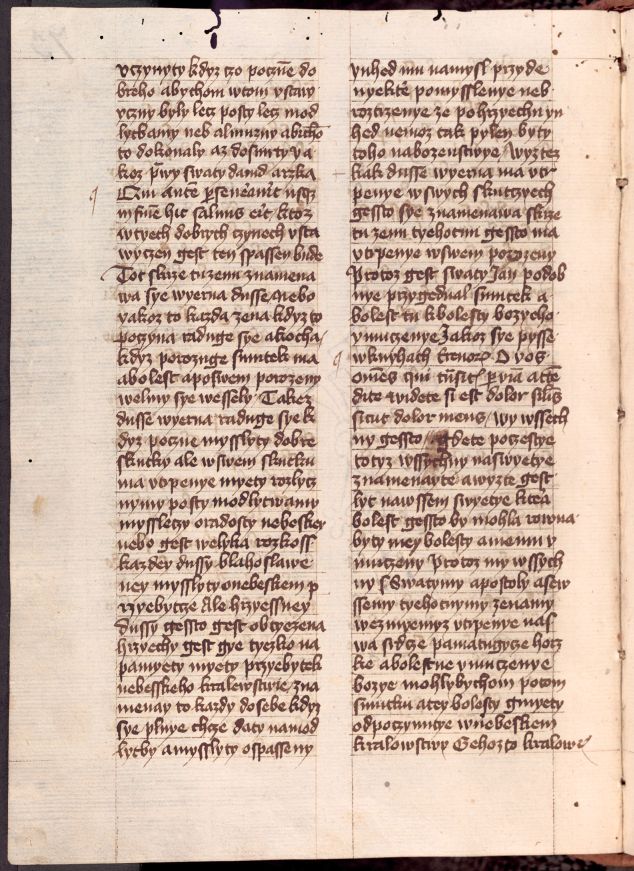 vczynyty kdyz czo poczne do
breho abychom wtom vstaw
vczny byly lecz posty lecz mod
lytbamy neb almuzny abicho
to dokonaly az dosmrty ya
koz prwy swaty dawid arzka
Qui ante perseuerauerit usqz
in fine hic saluus erit ktoz
wtyech dobrych czynech vsta
wyczen gest ten spassen bude
Tot skrze tu zenu znamena
wa sye wyerna dusse Nebo
yakoz to kazda zena kdyz to
poczyna raduge sye akocha
kdyz porozuge smutek ma
abolest aposwem porozeny
welmy sye wessely Takez
dusse wyerna raduge sye k
dyz poczne myslyty dobre
skutky ale wswem skutku
ma vtrpenye myety rozlycz
nymy posty modlytwamy
mysslecz oradosty nebeskey
nebo gest welyka rozkoss
kazdey dussy blahoslawe
ney mysslyty onebeskem p
rzyebytcze Ale hrzyessney
dussy gessto gest obtyezena
hrzyechy gest gye tyezko na
pamyety myety przyebytek
nebesskeho kralewstwie zna
menay to kazdy dosebe kdyz
sye plnye chcze daty namod
lytby amysslyty ospasseny
ynhed mu namysl przyde
nyekte pomysslenye neb
roztrzenye ze po hrzyechu yn
hed nemoz tak pylen byty
toho nabozenstwye Wyztez
kak dusse wyerna ma vtr
penye wswych skutczyech
gessto sye znamenawa skrze
tu zenu tyehotnu gessto ma
vtrpenye wswem porozeny
Protoz gest swaty Jan podob
nye przygednal smutek a
bolest tu kbolesty bozyeho
vmuczenye Jakoz sye pysse
wknyhach trenorum O vos
omnes qui transitis per viam atte
dite videte si est dolor similis
sicut dolor meus Wy wssech
ny gessto gdete poczestye
totyz wssychny naswyetye
znamenayte awyzte gest
lyt nawssem swyetye ktera
bolest gessto by mohla rowna
byty mey bolesty amemu v
muczeny Protoz my wssych
ny sSwatymy apostoly asew
ssemy tyehotnymy zenamy
wezmyemyz vtrpenye nas
wa srdcze pamatugycze horz
ke abolestne vmuczenye
bozye mohlybychom potom
smutku atey bolesty gmyety
odpoczynutye wnebeskem
kralowstwy Gehoz to kralowe